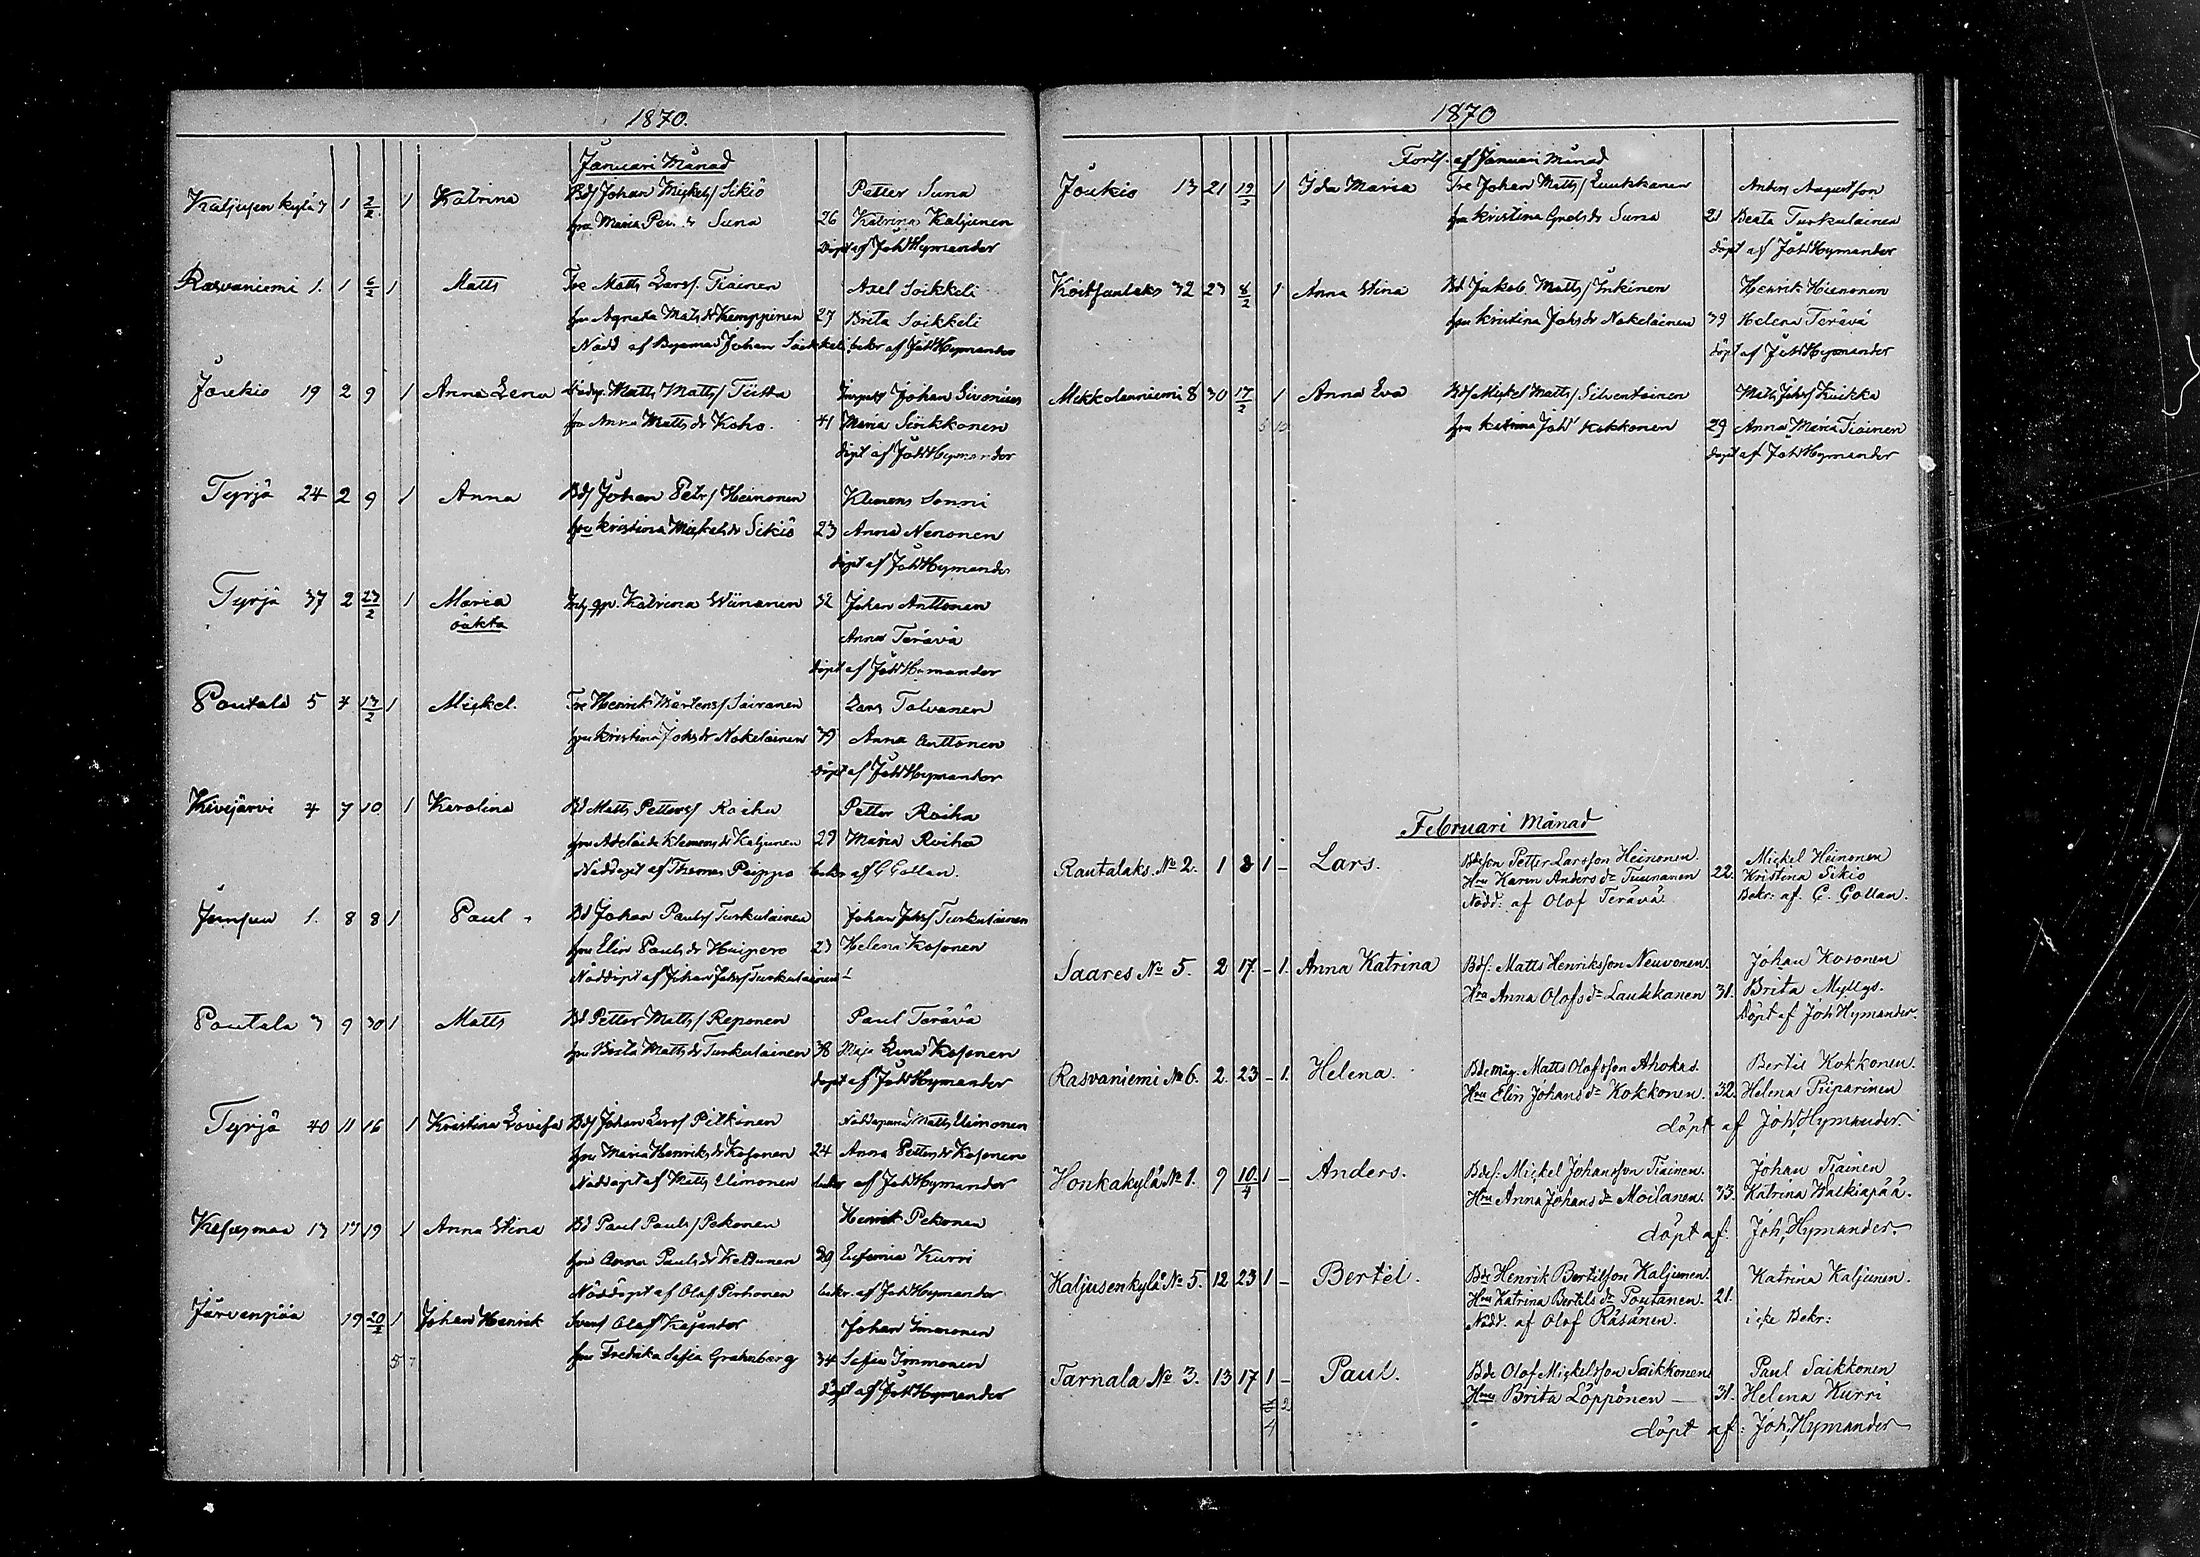 1870.
Januari Månad
Kaljusenkylä 7 1 2/2 1 Katrina Bds Johan Mickels/ Sikiö Petter Suna
fru Maria Suna 26 Katrina Kaljunen
Döpt af Joh Hymander
Rasvaniemi 1. 1 6/2 1 Matts Tre Matts Larss. Tiainen Axel Soikkeli
fru Agneta Matsdr Kemppinen 27 Brita Soikkeli
Nödd af Johan Soikkeli bekr af Joh Hymander
Joukio 19 2 9 1 Anna Lena Matts Matts/ Tiitta Johan Sivonius
fru Anna Mattsdr Koho. 41 Maria Sirkkonen
döpt af Joh Hymander
Tyrjä 24 2 9 1 Anna Bds Johan Petr/ Heinonen Klemens Sonni
fru Kristina Mickelsdr Sikiö 23 Anna Nenonen
döpt af Joh Hymander
Tyrjä 37 2 23/2 1 Maria Katrina Wiinanen 32 Johan Anttonen
oäkta Anna Terävä
döpt af Joh Hymander
Poutala 5 4 13/2 1 Mickel. Tre Henrik Mårtens/ Sairanen Lars Talvanen
fru Kristina Johsdr Nokelainen 39 Anna Anttonen
döpt af Joh Hymander
Kivijärvi 4 7 10 1 Karolina Bd Matts Petters/ Roiha Petter Roiha
fru Adelaide Klemensdr Kaljunen 29 Maria Roiha
Nöddöpt af Thomas Peippo bekr af G Gollan.
1. 8 8 1 Paul Bd Johan Pauls/ Turkulainen Johan Johs/ Turkulainen
fru Elin Paulsdr 23 Helena Kosonen
Nöddöpt af Johan Johs/ Turkulainen
Poutala 3 9 30 1 Matts Bd Petter Matts/ Reponen Paul Terävä
fru Beata Mattsdr Turkulainen 38 Maja Lena Kosonen
döpt af Joh Hymander
Tyrjä 40 11 16 1 Kristina Lovisa Bds Johan Larss/ Pitkänen Matts Uimonen
fru Maria Henriksdr Kosonen 24 Anna Pettersdr Kosonen
Nöddöpt af Matts Uimonen bekr af Joh Hymander
Kesusmaa 13 17 19 1 Anna Stina Bd Paul Pauls/ Pekonen Henrik Pekonen
fru Anna Paulsdr Keltunen 39 Eufemia Kurri
Nöddöpt af Olof Pirhonen bekr. af Joh Hymander
Järvenpää 19 20/2 1 Johan Henrik Olof Kajander Johan Immonen
5 7 fru Fredika Sofia Grahnberg 34 Sofia Immonen
döpt af Joh Hymander
1870
Forts. af Januari Månad
Joukio 13 21 1 Ida Maria Tre Johan Matts/ Luukkanen Anders Augustson
fru Kristina Suna 21 Beata Turkulainen
döpt af Joh Hymander
Koitsanlaks 32 23 8/2 1 Anna Stina Bd Jakob Matts/ Inkinen Henrik Hienonen
fru Kristina Johsdr Nokelainen 39 Helena Terävä
döpt af Joh Hymander
Mikkolanniemi 8 30 17/2 1 Anna Eva Bds Mickel Matts/ Silventoinen Matts Johs/ Kuikka
fru Katrina Joh Kokkonen 29 Anna Maria Tiainen
döpt af Joh Hymander
Februari Månad
Rautalaks. No 2. 1 8 1 – Lars. Bdeson Petter Larsson Heinonen. Mickel Heinonen
Hru Karin Andersdr Tuunanen 22. Kristina Sikiö
Nödd. af Olof Terävä. Bekr: af. G. Gollan.
Saares No 5. 2 17. – 1. Anna Katrina Bds: Matts Henriksson Neuvonen. Johan Kosonen
Hru Anna Olofsdr Laukkanen 31. Brita Myllys.
Döpt af Joh Hymander.
Rasvaniemi No 6. 2. 23 – 1. Helena. Bdemåg. Matts Olofsson Ahokas. Bertil Kokkonen.
Hru Elin Johansdr Kokkonen. 32. Helena Piiparinen
döpt af Joh, Hymander.
Honkakylä No 1. 9 10/4 1 – Anders. Bdes: Mickel Johansson Tiainen. Johan Tiainen
Hru Anna Johansdr Moilanen. 33. Katrina Walkiapää.
döpt af: Joh, Hymander.
Kaljusenkylä No 5. 12 23 1 – Bertil. Bde Henrik Bertilson Kaljunen. Katrina Kaljunen.
Hru Katrina Bertilsdr Poutanen. 21.
Nödd. af Olof Räsänen. icke Bekr:
Tarnala No 3. 13 17 1 – Paul. Bde Olof Mickelsson Saikkonen Paul Saikkonen
Hru Brita Löppönen — 31. Helena Kurri
4 döpt af: Joh, Hymander